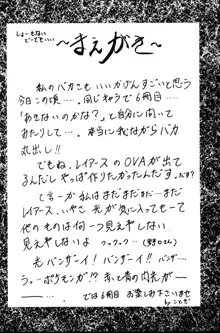 しょーもない
でーでもいい
〜まえがき〜
私のバカさもいいかげんすごいと思う
今日この頃……。同じキャラで6冊目……
「あきないのかな？」と自分に聞いて
みたりして……。本当に我ながらバカ
丸出し!!
でもね。レイアースのOVAが出て
るんだしやっぱ作りたかったんだす。だす?
て言ーか私はまだまだまだーまだ
レイアース、いやさ光が気に入ってもーて
他のものは何一つ見えやしない
見えやしないよ クックックッ…
光バンザーイ! バンザーイ!! バンザ……
う…ポケモンが!? 赤と青の閃光が―
―――…では6冊目お楽しみ下さいませ
by ことぎ